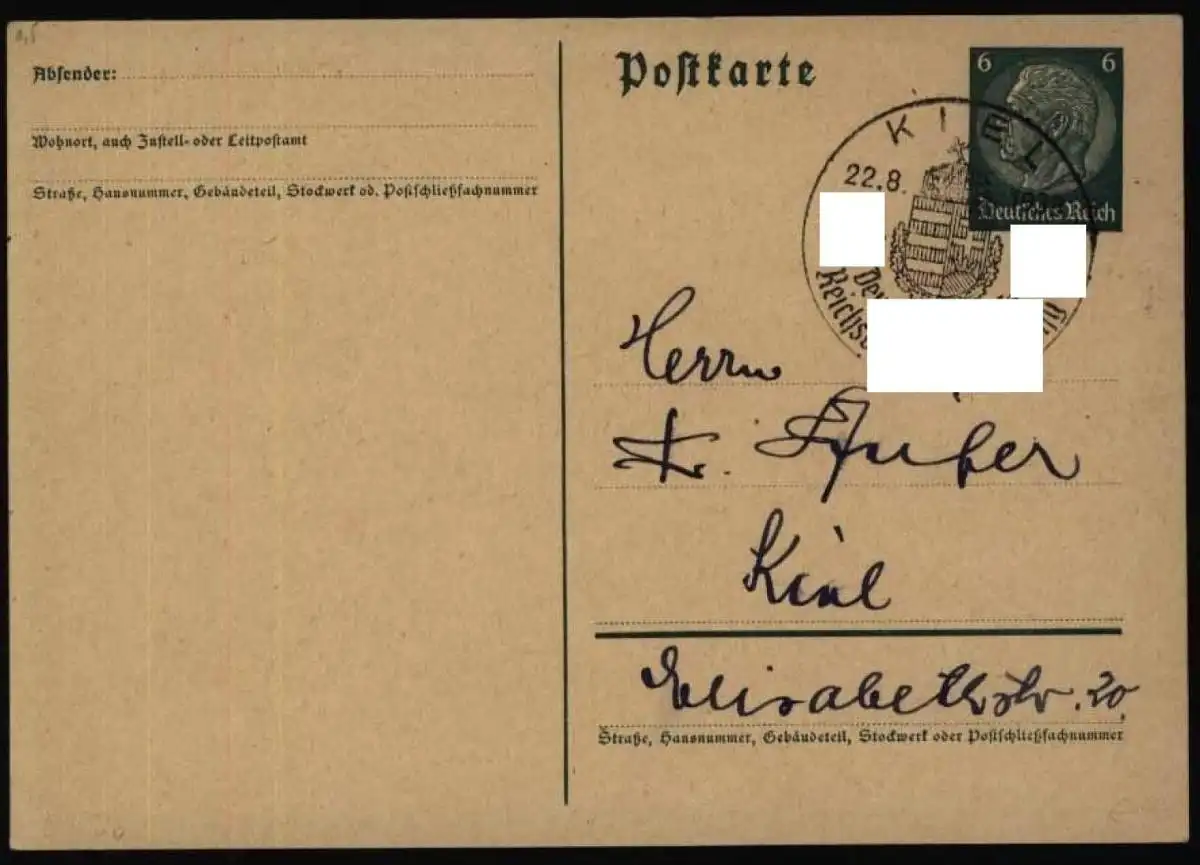 Absender:
Wohnort, auch Zustell- oder Leitpostamt
Straße, Hausnummer, Gebäudeteil, Stockwerk od. Postschließfachnummer
Postkarte
6 6
Deutsches Reich
KIEL
22.8.
Herrn
Dr.
Kiel
Elisabethstr. 20,
Straße, Hausnummer, Gebäudeteil, Stockwerk oder Postschließfachnummer